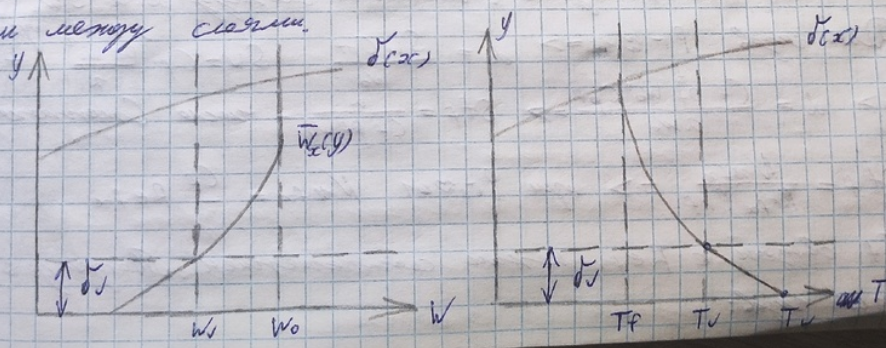 между слоями.
y δ(x)
W̄x(y)
δv
Wv W₀ W
y δ(x)
δv
Tf Tv Tw T